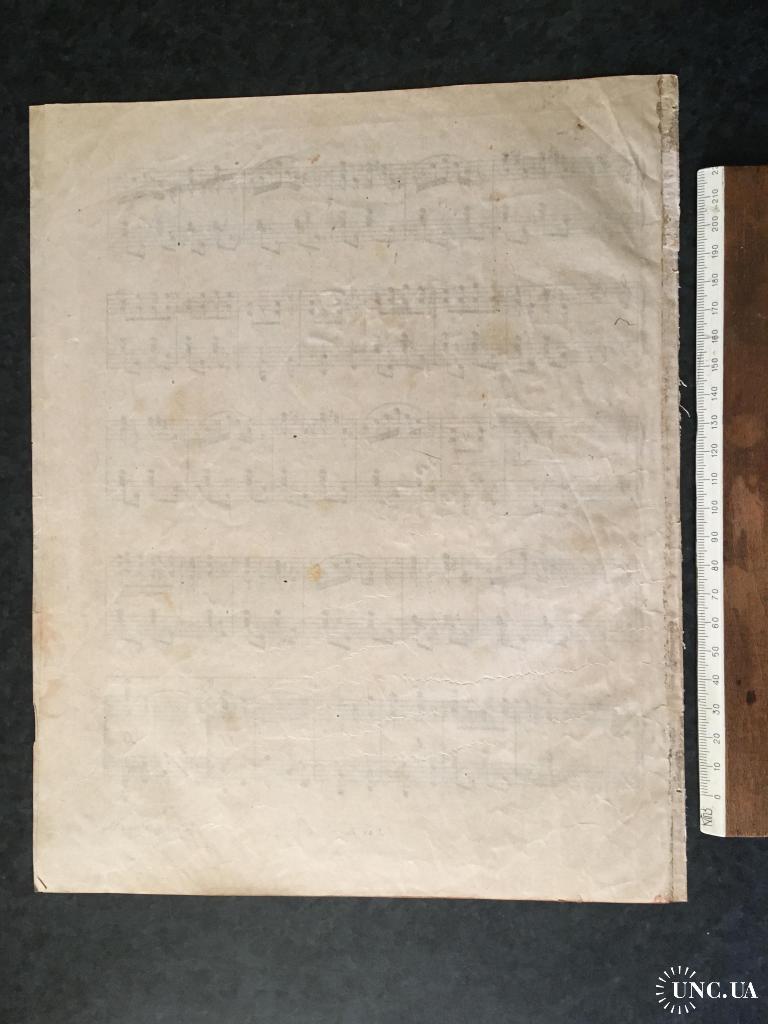 2
210
200
190
180
170
160
150
140
130
120
110
100
90
80
70
60
50
40
30
20
10
0
UNC.UA